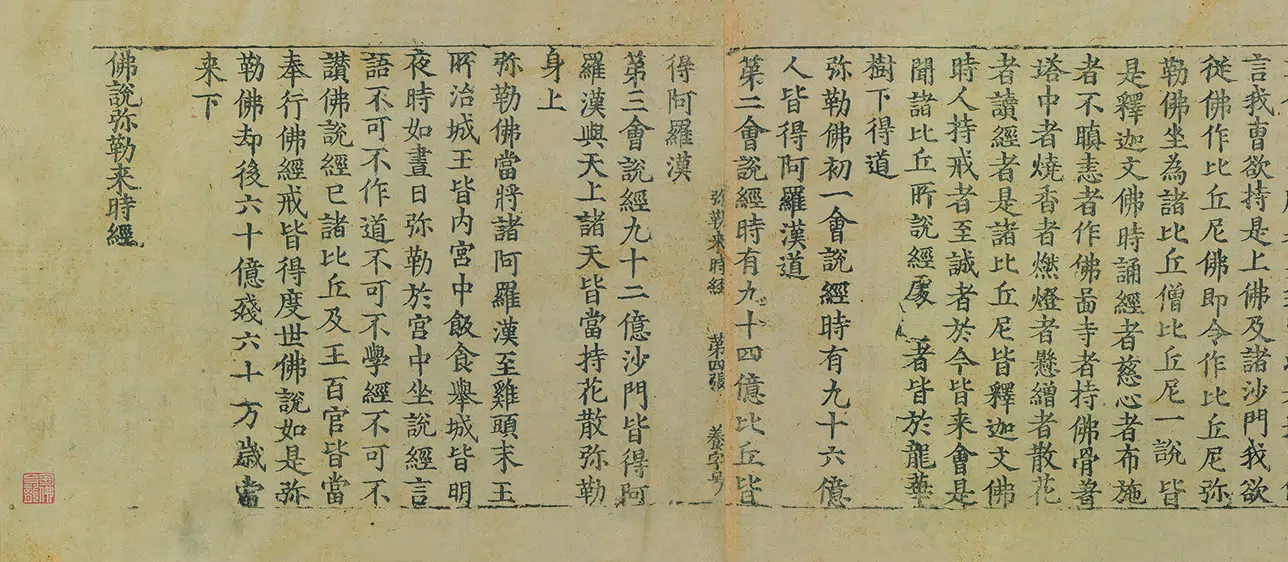 言我曹欲持是上佛及諸沙門我欲
從佛作比丘尼佛即令作比丘尼弥
勒佛坐為諸比丘僧比丘尼一說皆
是釋迦文佛時誦經者慈心者布施
者不瞋恚者作佛啚寺者持佛骨著
塔中者燒香者燃燈者懸繒者散花
者讀經者是諸比丘尼皆釋迦文佛
時人持戒者至誠者於今皆来會是
聞諸比丘所說經處者皆於龍華
樹下得道
弥勒佛初一會說經時有九十六億
人皆得阿羅漢道
第二會說經時有九十四億比丘皆
弥勒来時經 第四張 養字号
得阿羅漢
第三會說經九十二億沙門皆得阿
羅漢與天上諸天皆當持花散弥勒
身上
弥勒佛當將諸阿羅漢至雞頭末王
所治城王皆内宮中飯食舉城皆明
夜時如晝日弥勒於宮中坐說經言
語不可不作道不可不學經不可不
讃佛說經已諸比丘及王百官皆當
奉行佛經戒皆得度世佛說如是弥
勒佛却後六十億殘六十万歲當
来下
佛說弥勒来時經